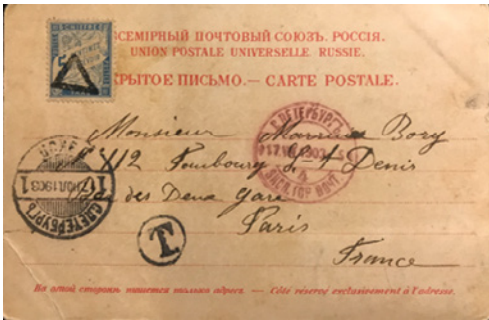 ВСЕМІРНЫЙ ПОЧТОВЫЙ СОЮЗЪ. РОССІЯ.
UNION POSTALE UNIVERSELLE. RUSSIE.
ОТКРЫТОЕ ПИСЬМО. — CARTE POSTALE.
Monsieur Maurice Bory
112 Faubourg St Denis
des Deux Gare
Paris
France
С.ПЕТЕРБУРГЪ
С.ПЕТЕРБУРГЪ
T
На этой сторонѣ пишется только адресъ. — Côté réservé exclusivement à l'adresse.